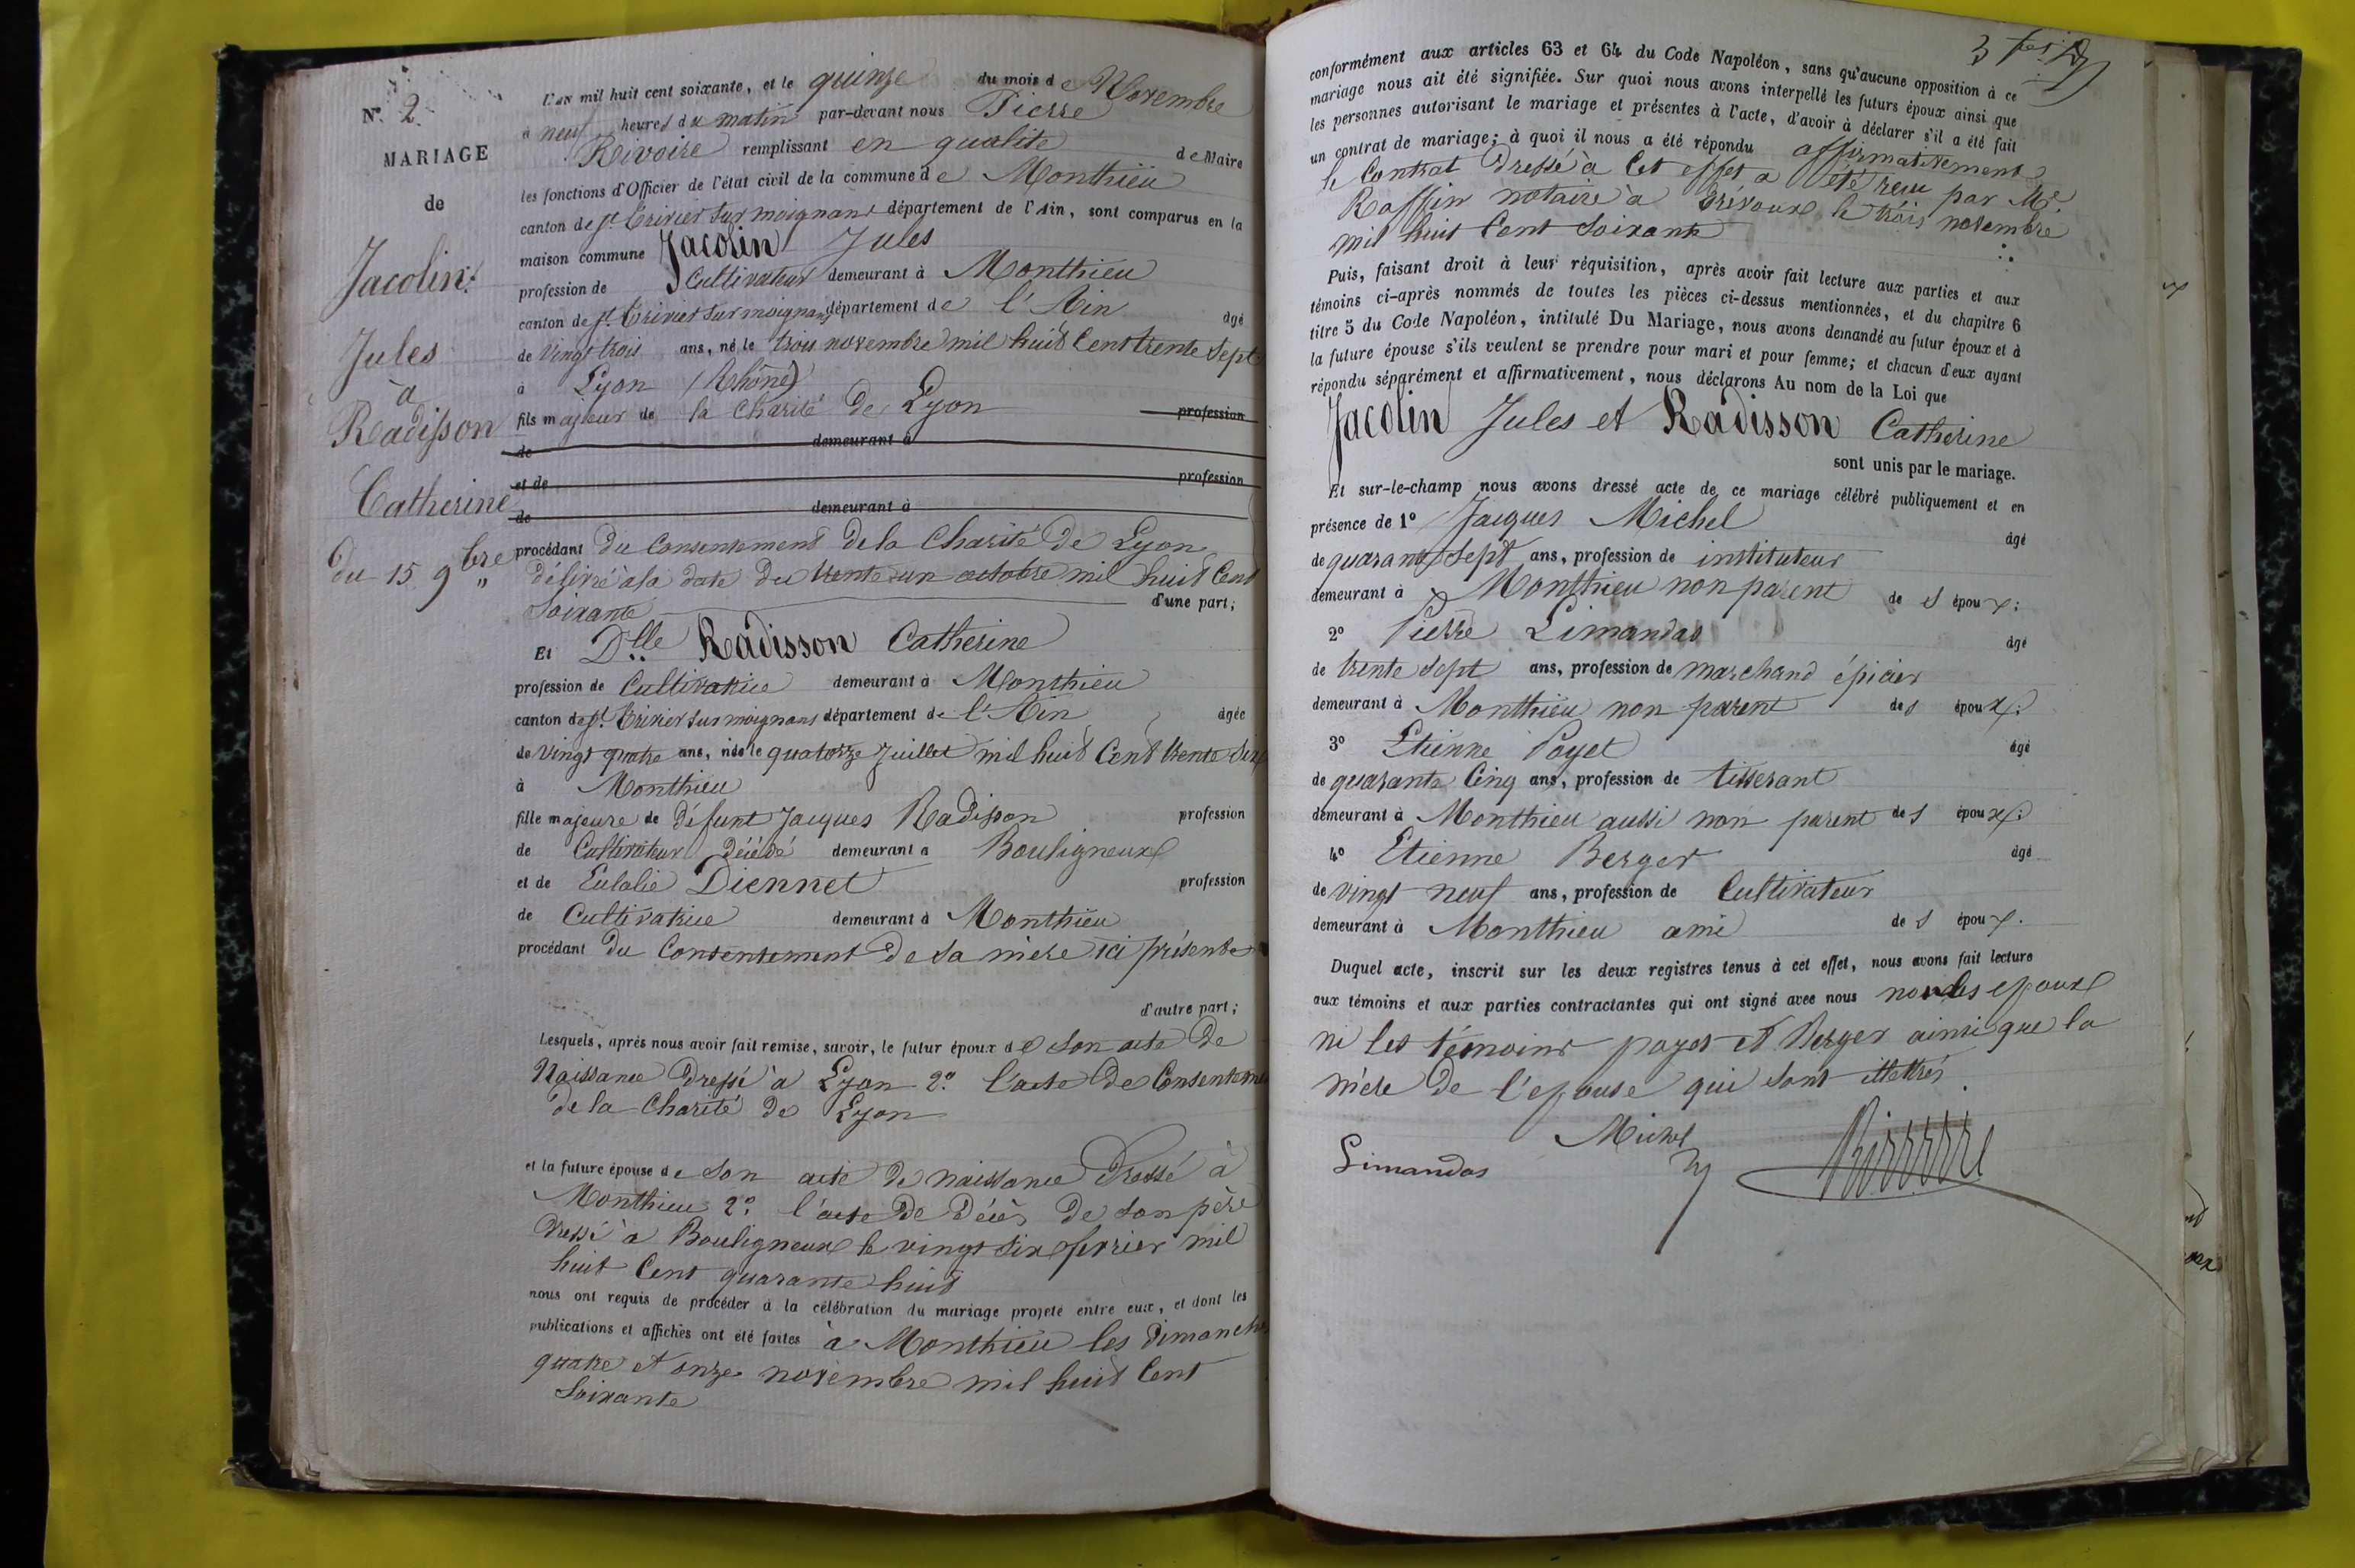 N.º 2
MARIAGE
de
Jacolin
Jules
à
Radisson
Catherine
du 15 9bre
L'an mil huit cent soixante, et le quinze du mois de Novembre
à neuf heures du matin par-devant nous Pierre
Rivoire remplissant en qualité de Maire
les fonctions d'Officier de l'état civil de la commune de Monthieu
canton de St. Trivier sur moignans département de l'Ain, sont comparus en la
maison commune Jacolin Jules
profession de Cultivateur demeurant à Monthieu
canton de St. Trivier sur moignans département de l'Ain âgé
de vingt trois ans, né le trois novembre mil huit Cent trente Sept
à Lyon (Rhône)
fils majeur de la Charité de Lyon profession
de demeurant à
et de profession
de demeurant à
procédant du Consentement de la Charité de Lyon
délivré à la date du trente un octobre mil huit Cent
Soixante d'une part;
Et Dlle Radisson Catherine
profession de Cultivatrice demeurant à Monthieu
canton de St. Trivier sur moignans département de l'Ain âgée
de vingt quatre ans, née le quatorze Juillet mil huit Cent trente Six
à Monthieu
fille majeure de défunt Jacques Radisson profession
de Cultivateur décédé demeurant à Bouligneux
et de Eulalie Diennet profession
de Cultivatrice demeurant à Monthieu
procédant du Consentement de sa mère ici présente
d'autre part;
Lesquels, après nous avoir fait remise, savoir, le futur époux de Son acte de
Naissance dressé à Lyon 2º. l'acte de Consenteme
de la Charité de Lyon
et la future épouse de Son acte de naissance dressé à
Monthieu 2º. l'acte de décès de son père
dressé à Bouligneux le vingt six fevrier mil
huit Cent quarante huit
nous ont requis de procéder à la célébration du mariage projeté entre eux, et dont les
publications et affiches ont été faites à Monthieu les dimanches
quatre et onze novembre mil huit Cent
Soixante
conformément aux articles 63 et 64 du Code Napoléon, sans qu'aucune opposition à ce
mariage nous ait été signifiée. Sur quoi nous avons interpellé les futurs époux ainsi que
les personnes autorisant le mariage et présentes à l'acte, d'avoir à déclarer s'il a été fait
un contrat de mariage; à quoi il nous a été répondu affirmativement
le Contrat dressé à Cet effet a été reçu par Me.
Raffin notaire à Trévoux le trois novembre
mil huit Cent Soixante
Puis, faisant droit à leur réquisition, après avoir fait lecture aux parties et aux
témoins ci-après nommés de toutes les pièces ci-dessus mentionnées, et du chapitre 6
titre 5 du Code Napoléon, intitulé Du Mariage, nous avons demandé au futur époux et à
la future épouse s'ils veulent se prendre pour mari et pour femme; et chacun d'eux ayant
répondu séparément et affirmativement, nous déclarons Au nom de la Loi que
Jacolin Jules et Radisson Catherine
sont unis par le mariage.
Et sur-le-champ nous avons dressé acte de ce mariage célébré publiquement et en
présence de 1º Jacques Michel âgé
de quarante Sept ans, profession de instituteur
demeurant à Monthieu non parent des époux;
2º Pierre Limandas âgé
de trente Sept ans, profession de marchand épicier
demeurant à Monthieu non parent des époux;
3º Etienne Poyet âgé
de quarante Cinq ans, profession de tisserant
demeurant à Monthieu aussi non parent des époux;
4º Etienne Berger âgé
de vingt neuf ans, profession de Cultivateur
demeurant à Monthieu ami des époux.
Duquel acte, inscrit sur les deux registres tenus à cet effet, nous avons fait lecture
aux témoins et aux parties contractantes qui ont signé avec nous non les epoux
ni les témoins poyet et Berger ainsi que la
mère de l'epouse qui sont illettrés.
Michel
Limandas